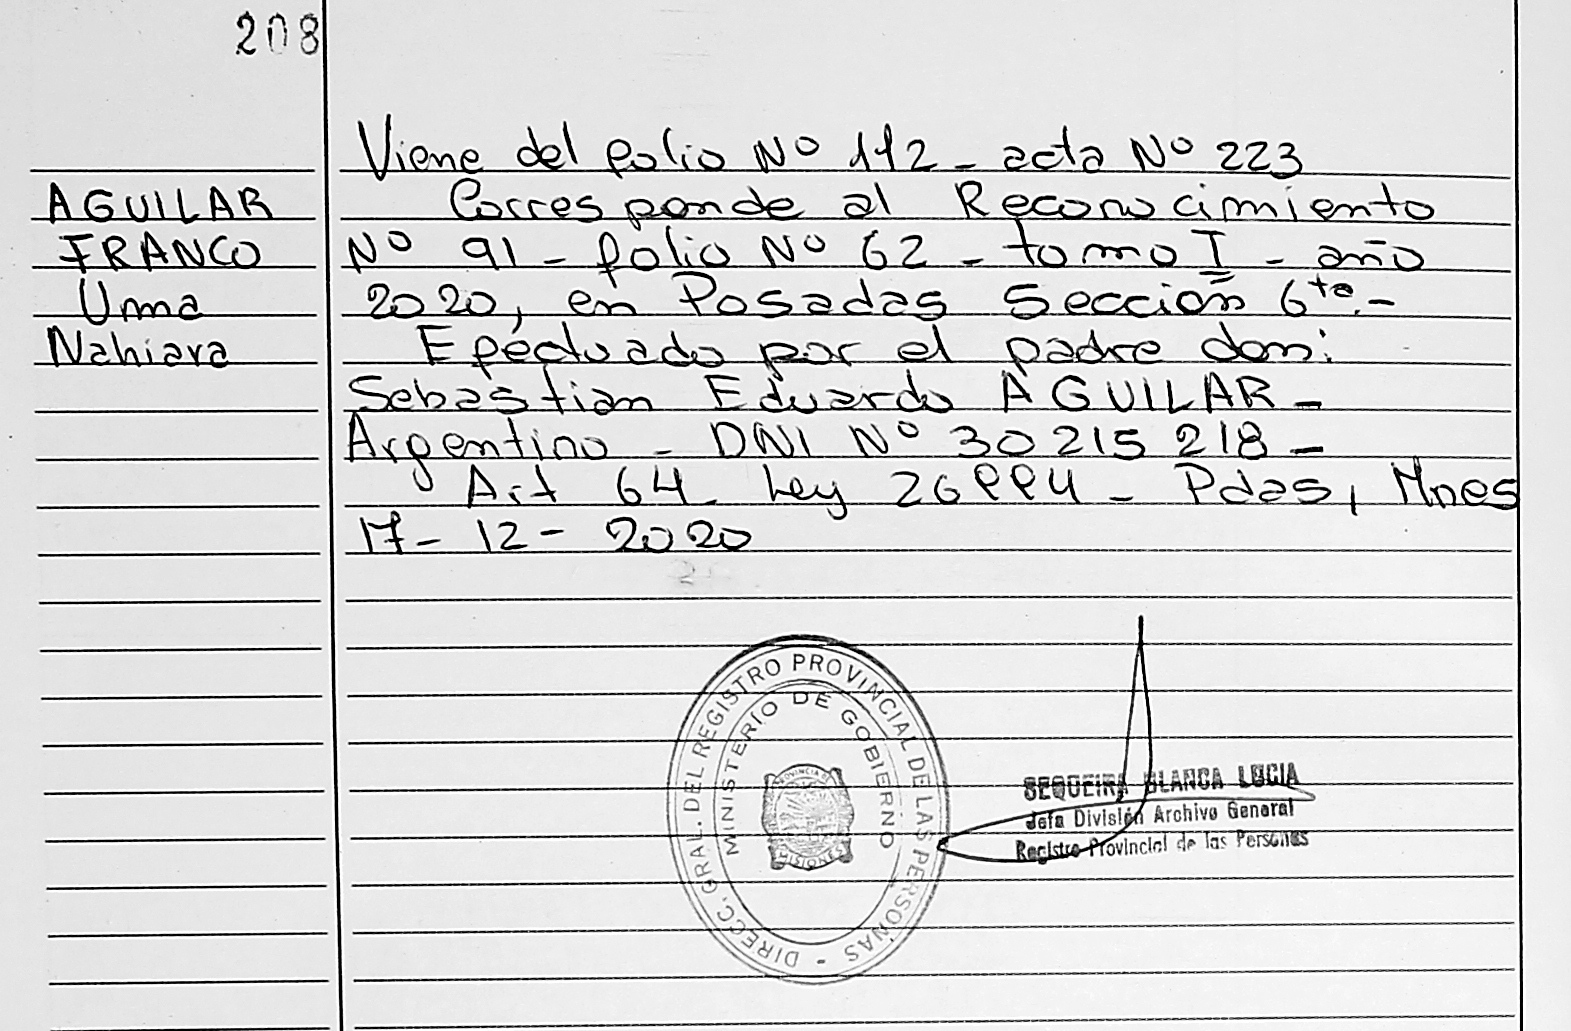 208
AGUILAR
FRANCO
Unma
Nahiara
Viene del folio Nº 112 - acta Nº 223
Corresponde al Reconocimiento
Nº 91 - folio Nº 62 - tomo I - año
2020, en Posadas Sección 6ta.-
Efectuado por el padre don:
Sebastian Eduardo AGUILAR -
Argentino - DNI Nº 30215218 -
Art 64 - Ley 26994 - Pdas, Mnes
17-12-2020
DIRECC. GRAL. DEL REGISTRO PROVINCIAL DE LAS PERSONAS -
MINISTERIO DE GOBIERNO
PROVINCIA DE
MISIONES
SEQUEIRA BLANCA LUCIA
Jefa División Archivo General
Registro Provincial de las Personas